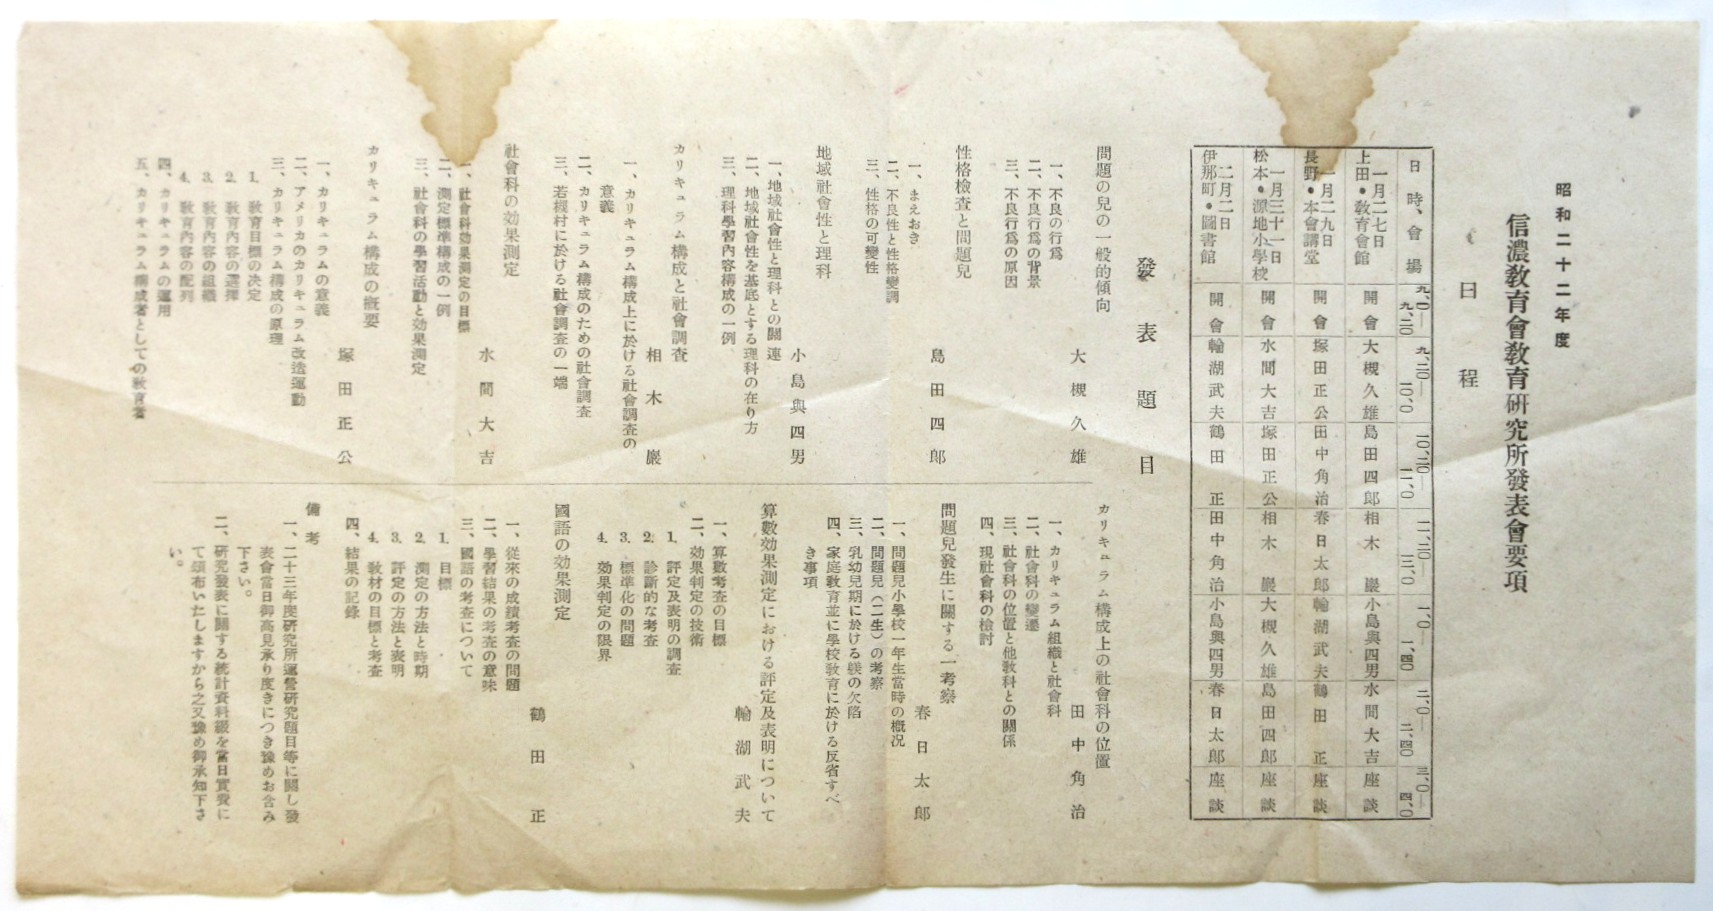 昭和二十二年度
信濃敎育會敎育硏究所發表會要項
日程
日時、會場
九、〇―九、二〇
九、二〇―一〇、〇
一〇、二〇―一一、〇
一、〇―一、四〇
二、〇―二、四〇
三、〇―四、〇
一月二七日
上田・敎育會館
開會
大槻久雄
島田四郎
相木巖
小島與四男
水間大吉
座談
一月二九日
長野・本會講堂
開會
塚田正公
田中角治
春日太郎
輪湖武夫
鶴田正
座談
一月三十一日
松本・源地小學校
開會
水間大吉
塚田正公
相木巖
大槻久雄
島田四郎
座談
二月二日
伊那町・圖書館
開會
輪湖武夫
鶴田正
田中角治
小島與四男
春日太郎
座談
發表題目
問題の兒の一般的傾向
大槻久雄
一、不良の行爲
二、不良行爲の背景
三、不良行爲の原因
性格檢査と問題兒
島田四郎
一、まえおき
二、不良性と性格變調
三、性格の可變性
地域社會性と理科
小島與四男
一、地域社會性と理科との關連
二、地域社會性を基底とする理科の在り方
三、理科學習內容構成の一例
カリキュラム構成と社會調査
相木巖
一、カリキュラム構成上に於ける社會調査の
意義
二、カリキュラム構成のための社會調査
三、若槻村に於ける社會調査の一端
社會科の効果測定
水間大吉
一、社會科効果測定の目標
二、測定標準構成の一例
三、社會科の學習活動と効果測定
カリキュラム構成の槪要
塚田正公
一、カリキュラムの意義
二、アメリカのカリキュラム改造運動
三、カリキュラム構成の原理
1. 敎育目標の決定
2. 敎育內容の選擇
3. 敎育內容の組織
4. 敎育內容の配列
四、カリキュラムの運用
五、カリキュラム構成者としての敎育者
カリキュラム構成上の社會科の位置
田中角治
一、カリキュラム組織と社會科
二、社會科の變遷
三、社會科の位置と他敎科との關係
四、現社會科の檢討
問題兒發生に關する一考察
春日太郎
一、問題兒小學校一年生當時の槪況
二、問題兒(二生)の考察
三、乳幼兒期に於ける躾の欠陷
四、家庭敎育並に學校敎育に於ける反省すべ
き事項
算數効果測定における評定及表明について
輪湖武夫
一、算數考査の目標
二、効果判定の技術
1. 評定及表明の調査
2. 診斷的な考査
3. 標準化の問題
4. 効果判定の限界
國語の効果測定
鶴田正
一、從來の成績考査の問題
二、學習結果の考査の意味
三、國語の考査について
1. 目標
2. 測定の方法と時期
3. 評定の方法と表明
4. 敎材の目標と考査
四、結果の記錄
備考
一、二十三年度硏究所運營硏究題目等に關し發
表會當日御高見承り度きにつき豫めお含み
下さい。
二、硏究發表に關する統計資料綴を當日實費に
て頒布いたしますから之又豫め御承知下さ
い。